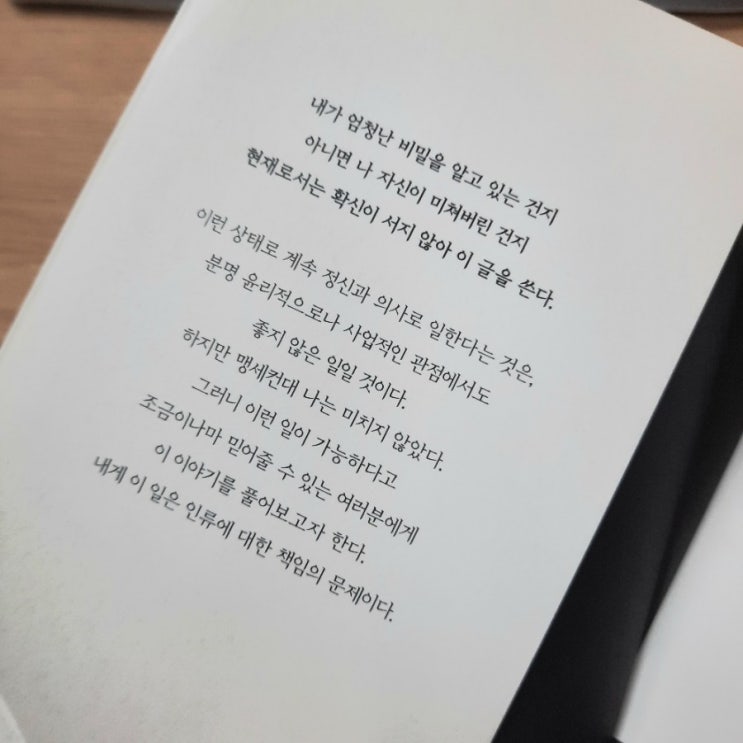 내가 엄청난 비밀을 알고 있는 건지
아니면 나 자신이 미쳐버린 건지
현재로서는 확신이 서지 않아 이 글을 쓴다.
이런 상태로 계속 정신과 의사로 일한다는 것은,
분명 윤리적으로나 사업적인 관점에서도
좋지 않은 일일 것이다.
하지만 맹세컨대 나는 미치지 않았다.
그러니 이런 일이 가능하다고
조금이나마 믿어줄 수 있는 여러분에게
이 이야기를 풀어보고자 한다.
내게 이 일은 인류에 대한 책임의 문제이다.